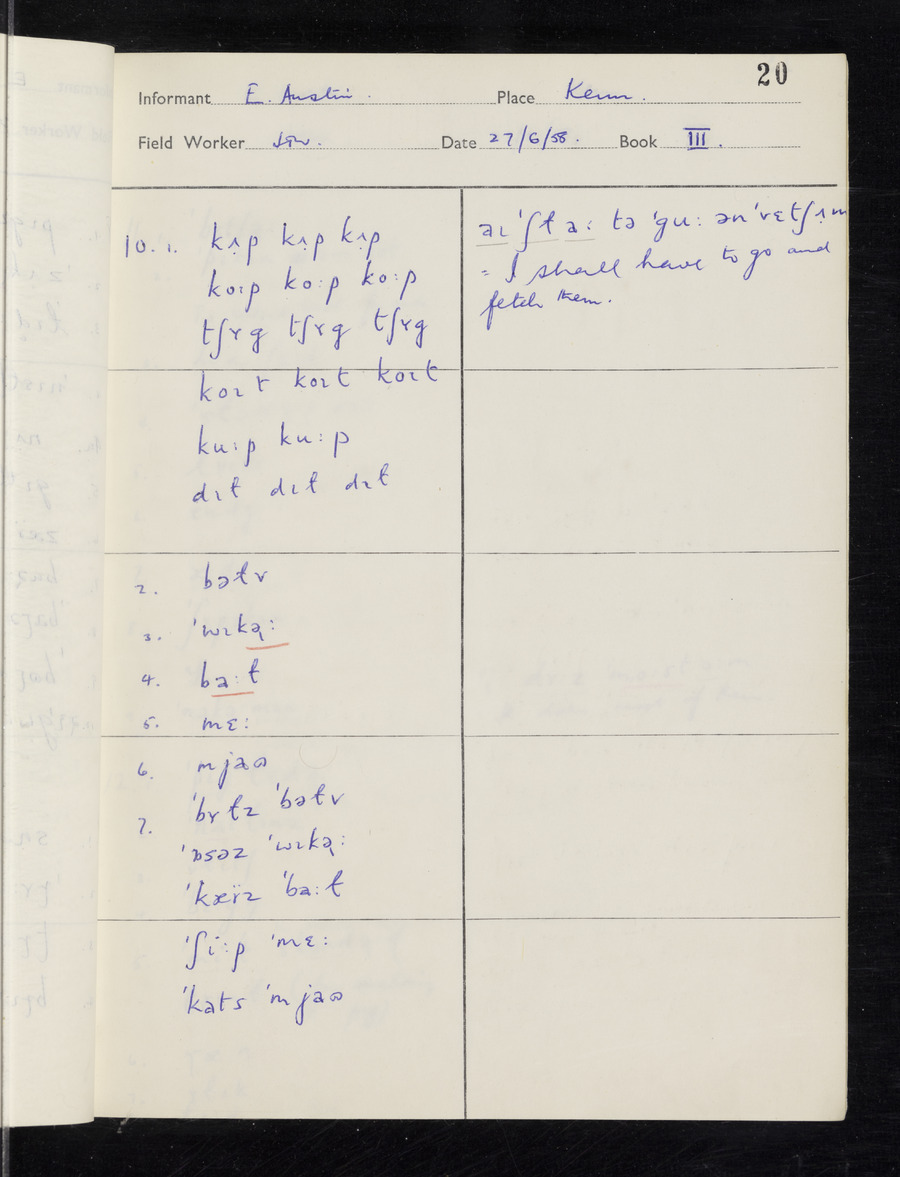 20
Informant E. Austin. Place Kenn.
Field Worker Date 27/6/56. Book III.
10. 1. kʌ̣p kʌ̣p kʌ̣p
koːp koːp koːp
tʃɤg tʃɤg tʃɤg
koɪt koɪt koɪt
kuːp kuːp
dɪt dɪt dɪt
2. bəɫɤ
3. ˈwɪkə̣ː
4. baːɫ
5. mɛː
6. mjaʊ
7. ˈbɤɫz ˈbəɫɤ
ˈɒsəz ˈwɪkə̣ː
ˈkæïz ˈbaːɫ
ˈʃiːp ˈmɛː
ˈkats ˈmjaʊ
aɪ ˈʃɫ aː tə ˈguː ən ˈvɛtʃ ə̣m
= I shall have to go and
fetch them.